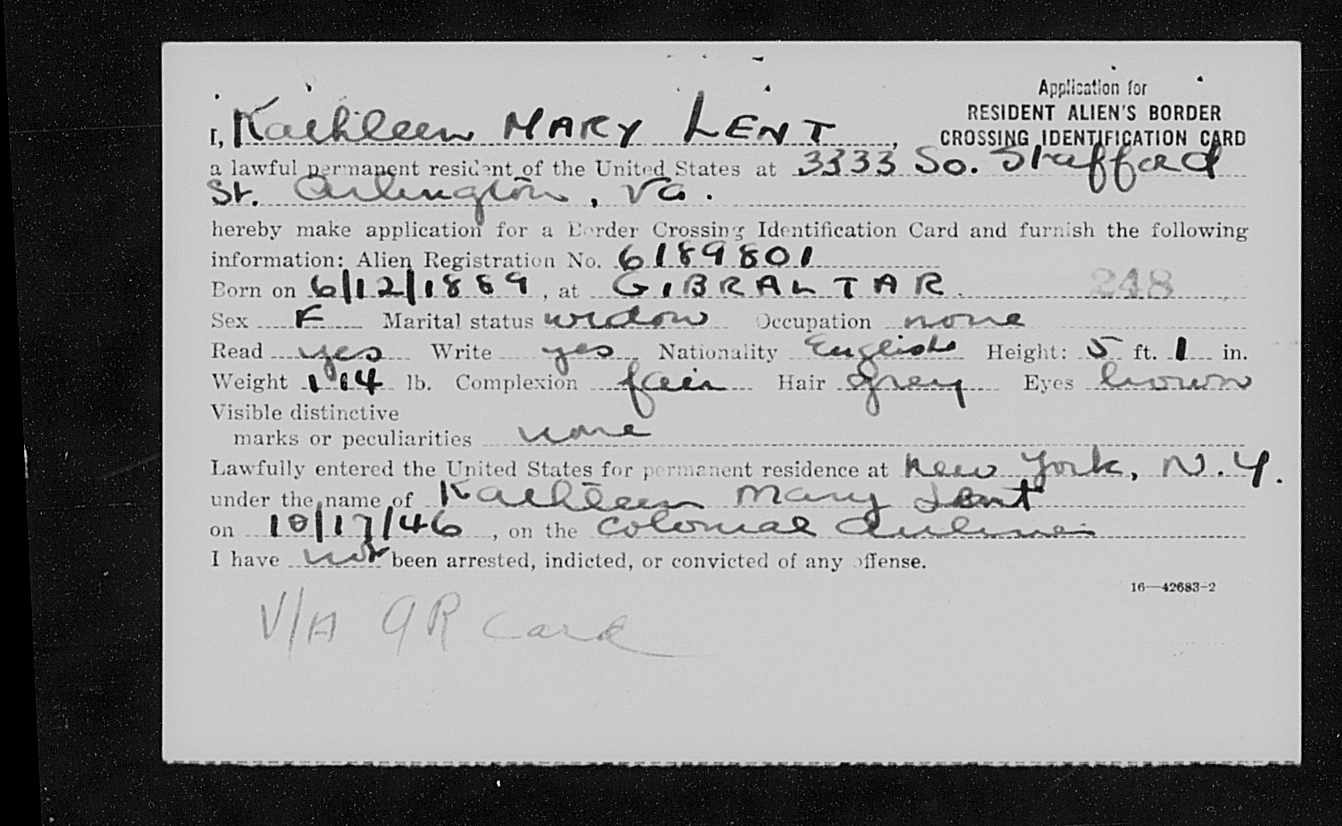 Application for
RESIDENT ALIEN'S BORDER
CROSSING IDENTIFICATION CARD
I, Kathleen MARY LENT,
a lawful permanent resident of the United States at 3333 So. Stafford
St. Arlington, Va.
hereby make application for a Border Crossing Identification Card and furnish the following
information: Alien Registration No. 6189801
Born on 6/12/1889, at GIBRALTAR. 248
Sex F Marital status widow Occupation none
Read yes Write yes, Nationality English Height: 5 ft. 1 in.
Weight 114 lb. Complexion fair Hair grey Eyes brown
Visible distinctive
marks or peculiarities none
Lawfully entered the United States for permanent residence at New York, N.Y.
under the name of Kathleen Mary Lent
on 10/17/46, on the Colonial Airlines
I have not been arrested, indicted, or convicted of any offense.
16—42683-2
V/A AR Card